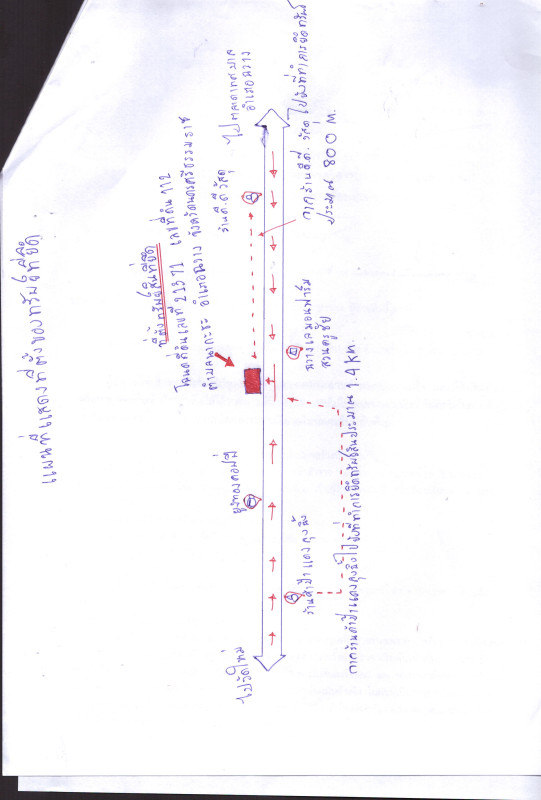 แผนที่แสดงที่ตั้งของทรัพย์ที่ยึด
ที่ตั้งทรัพย์สินที่ยึด
โฉนดที่ดินเลขที่ 21371 เลขที่ดิน 112
ตำบลนากะชะ อำเภอฉวาง จังหวัดนครศรีธรรมราช
ร้านดี.ดี วัสดุ
ไปตลาดเทศบาล
อำเภอฉวาง
ยูงทองคอฟฟี่
ไปวัดใหม่
ร้านค้าป้าแดงถุงฉิ้ง
ฉวางเลมอนฟาร์ม
สวนครูชัย
จากร้านดี.ดี. วัสดุ ไปยังที่ทำการยึดทรัพย์
ประมาณ 800 M.
จากร้านค้าป้าแดงถุงฉิ้งไปยังที่ทำการยึดทรัพย์สินประมาณ 1.4 KM.